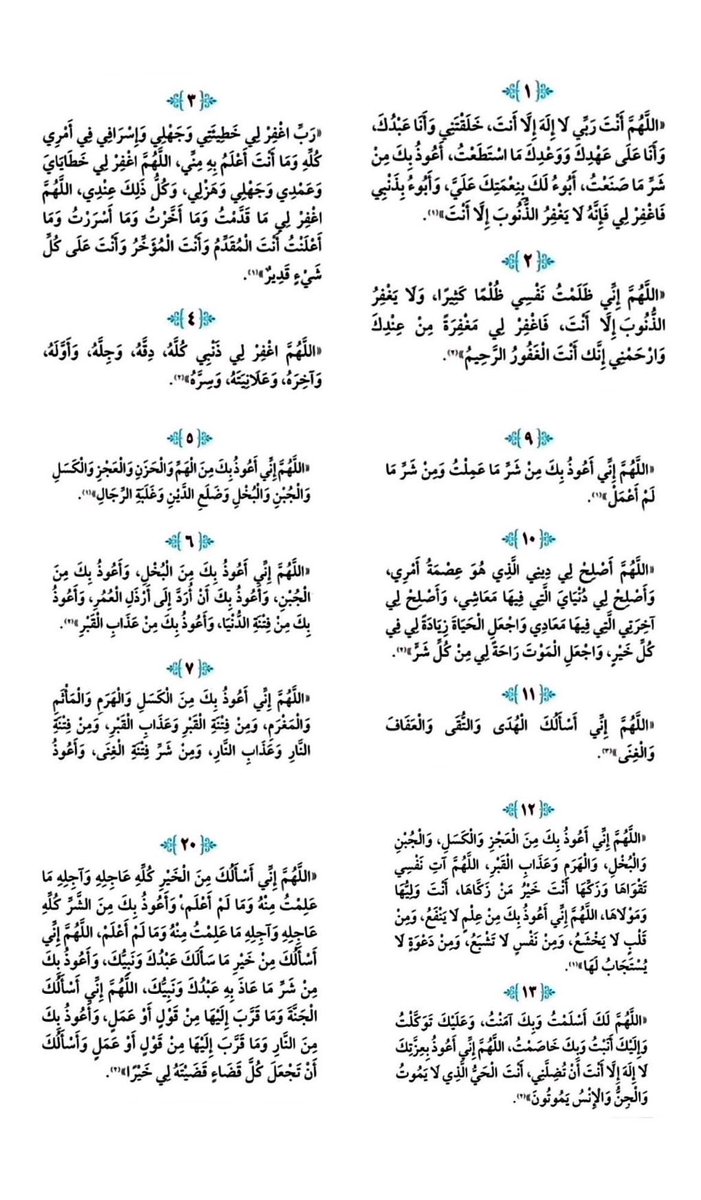 ﴿١﴾
«اللَّهُمَّ أَنْتَ رَبِّي لَا إِلَهَ إِلَّا أَنتَ، خَلَقْتَنِي وَأَنَا عَبْدُكَ،
وَأَنَا عَلَى عَهْدِكَ وَوَعْدِكَ مَا اسْتَطَعْتُ، أَعُوذُ بِكَ مِنْ
شَرِّ مَا صَنَعْتُ، أَبُوءُ لَكَ بِنِعْمَتِكَ عَلَيَّ، وَأَبُوءُ بِذَنْبِي
فَاغْفِرْ لِي فَإِنَّهُ لَا يَغْفِرُ الذُّنُوبَ إِلَّا أَنْتَ»(١).
﴿٢﴾
«اللَّهُمَّ إِنِّي ظَلَمْتُ نَفْسِي ظُلْمًا كَثِيرًا، وَلَا يَغْفِرُ
الذُّنُوبَ إِلَّا أَنْتَ، فَاغْفِرْ لِي مَغْفِرَةً مِنْ عِنْدِكَ
وَارْحَمْنِي إِنَّك أَنْتَ الْغَفُورُ الرَّحِيمُ»(٢).
﴿٣﴾
«رَبِّ اغْفِرْ لِي خَطِيئَتِي وَجَهْلِي وَإِسْرَافِي فِي أَمْرِي
كُلِّهِ وَمَا أَنْتَ أَعْلَمُ بِهِ مِنِّي، اللَّهُمَّ اغْفِرْ لِي خَطَايَايَ
وَعَمْدِي وَجَهْلِي وَهَزْلِي، وَكُلُّ ذَلِكَ عِنْدِي، اللَّهُمَّ
اغْفِرْ لِي مَا قَدَّمْتُ وَمَا أَخَّرْتُ وَمَا أَسْرَرْتُ وَمَا
أَعْلَنْتُ أَنْتَ الْمُقَدِّمُ وَأَنْتَ الْمُؤَخِّرُ وَأَنْتَ عَلَى كُلِّ
شَيْءٍ قَدِيرٌ»(١).
﴿٤﴾
«اللَّهُمَّ اغْفِرْ لِي ذَنْبِي كُلَّهُ، دِقَّهُ، وَجِلَّهُ، وَأَوَّلَهُ،
وَآخِرَهُ، وَعَلَانِيَتَهُ، وَسِرَّهُ»(٢).
﴿٥﴾
«اللَّهُمَّ إِنِّي أَعُوذُ بِكَ مِنَ الْهَمِّ وَالْحَزَنِ وَالْعَجْزِ وَالْكَسَلِ
وَالْجُبْنِ وَالْبُخْلِ وَضَلَعِ الدَّيْنِ وَغَلَبَةِ الرِّجَالِ»(١).
﴿٦﴾
«اللَّهُمَّ إِنِّي أَعُوذُ بِكَ مِنَ الْبُخْلِ، وَأَعُوذُ بِكَ مِنَ
الْجُبْنِ، وَأَعُوذُ بِكَ أَنْ أُرَدَّ إِلَى أَرْذَلِ الْعُمُرِ، وَأَعُوذُ
بِكَ مِنْ فِتْنَةِ الدُّنْيَا، وَأَعُوذُ بِكَ مِنْ عَذَابِ الْقَبْرِ»(٢).
﴿٧﴾
«اللَّهُمَّ إِنِّي أَعُوذُ بِكَ مِنَ الْكَسَلِ وَالْهَرَمِ وَالْمَأْثَمِ
وَالْمَغْرَمِ، وَمِنْ فِتْنَةِ الْقَبْرِ وَعَذَابِ الْقَبْرِ، وَمِنْ فِتْنَةِ
النَّارِ وَعَذَابِ النَّارِ، وَمِنْ شَرِّ فِتْنَةِ الْغِنَى، وَأَعُوذُ
﴿٩﴾
«اللَّهُمَّ إِنِّي أَعُوذُ بِكَ مِنْ شَرِّ مَا عَمِلْتُ وَمِنْ شَرِّ مَا
لَمْ أَعْمَلْ»(١).
﴿١٠﴾
«اللَّهُمَّ أَصْلِحْ لِي دِينِي الَّذِي هُوَ عِصْمَةُ أَمْرِي،
وَأَصْلِحْ لِي دُنْيَايَ الَّتِي فِيهَا مَعَاشِي، وَأَصْلِحْ لِي
آخِرَتِي الَّتِي فِيهَا مَعَادِي وَاجْعَلِ الْحَيَاةَ زِيَادَةً لِي فِي
كُلِّ خَيْرٍ، وَاجْعَلِ الْمَوْتَ رَاحَةً لِي مِنْ كُلِّ شَرٍّ»(٢).
﴿١١﴾
«اللَّهُمَّ إِنِّي أَسْأَلُكَ الْهُدَى وَالتُّقَى وَالْعَفَافَ
وَالْغِنَى»(٣).
﴿١٢﴾
«اللَّهُمَّ إِنِّي أَعُوذُ بِكَ مِنَ الْعَجْزِ وَالْكَسَلِ، وَالْجُبْنِ
وَالْبُخْلِ، وَالْهَرَمِ وَعَذَابِ الْقَبْرِ، اللَّهُمَّ آتِ نَفْسِي
تَقْوَاهَا وَزَكِّهَا أَنْتَ خَيْرُ مَنْ زَكَّاهَا، أَنْتَ وَلِيُّهَا
وَمَوْلَاهَا، اللَّهُمَّ إِنِّي أَعُوذُ بِكَ مِنْ عِلْمٍ لَا يَنْفَعُ، وَمِنْ
قَلْبٍ لَا يَخْشَعُ، وَمِنْ نَفْسٍ لَا تَشْبَعُ، وَمِنْ دَعْوَةٍ لَا
يُسْتَجَابُ لَهَا»(١).
﴿١٣﴾
«اللَّهُمَّ لَكَ أَسْلَمْتُ وَبِكَ آمَنْتُ، وَعَلَيْكَ تَوَكَّلْتُ
وَإِلَيْكَ أَنَبْتُ وَبِكَ خَاصَمْتُ، اللَّهُمَّ إِنِّي أَعُوذُ بِعِزَّتِكَ
لَا إِلَهَ إِلَّا أَنْتَ أَنْ تُضِلَّنِي، أَنْتَ الْحَيُّ الَّذِي لَا يَمُوتُ
وَالْجِنُّ وَالْإِنْسُ يَمُوتُونَ»(٢).
﴿٢٠﴾
«اللَّهُمَّ إِنِّي أَسْأَلُكَ مِنَ الْخَيْرِ كُلِّهِ عَاجِلِهِ وَآجِلِهِ مَا
عَلِمْتُ مِنْهُ وَمَا لَمْ أَعْلَمْ، وَأَعُوذُ بِكَ مِنَ الشَّرِّ كُلِّهِ
عَاجِلِهِ وَآجِلِهِ مَا عَلِمْتُ مِنْهُ وَمَا لَمْ أَعْلَمْ، اللَّهُمَّ إِنِّي
أَسْأَلُكَ مِنْ خَيْرِ مَا سَأَلَكَ عَبْدُكَ وَنَبِيُّكَ، وَأَعُوذُ بِكَ
مِنْ شَرِّ مَا عَاذَ بِهِ عَبْدُكَ وَنَبِيُّكَ، اللَّهُمَّ إِنِّي أَسْأَلُكَ
الْجَنَّةَ وَمَا قَرَّبَ إِلَيْهَا مِنْ قَوْلٍ أَوْ عَمَلٍ، وَأَعُوذُ بِكَ
مِنَ النَّارِ وَمَا قَرَّبَ إِلَيْهَا مِنْ قَوْلٍ أَوْ عَمَلٍ وَأَسْأَلُكَ
أَنْ تَجْعَلَ كُلَّ قَضَاءٍ قَضَيْتَهُ لِي خَيْرًا»(٢).